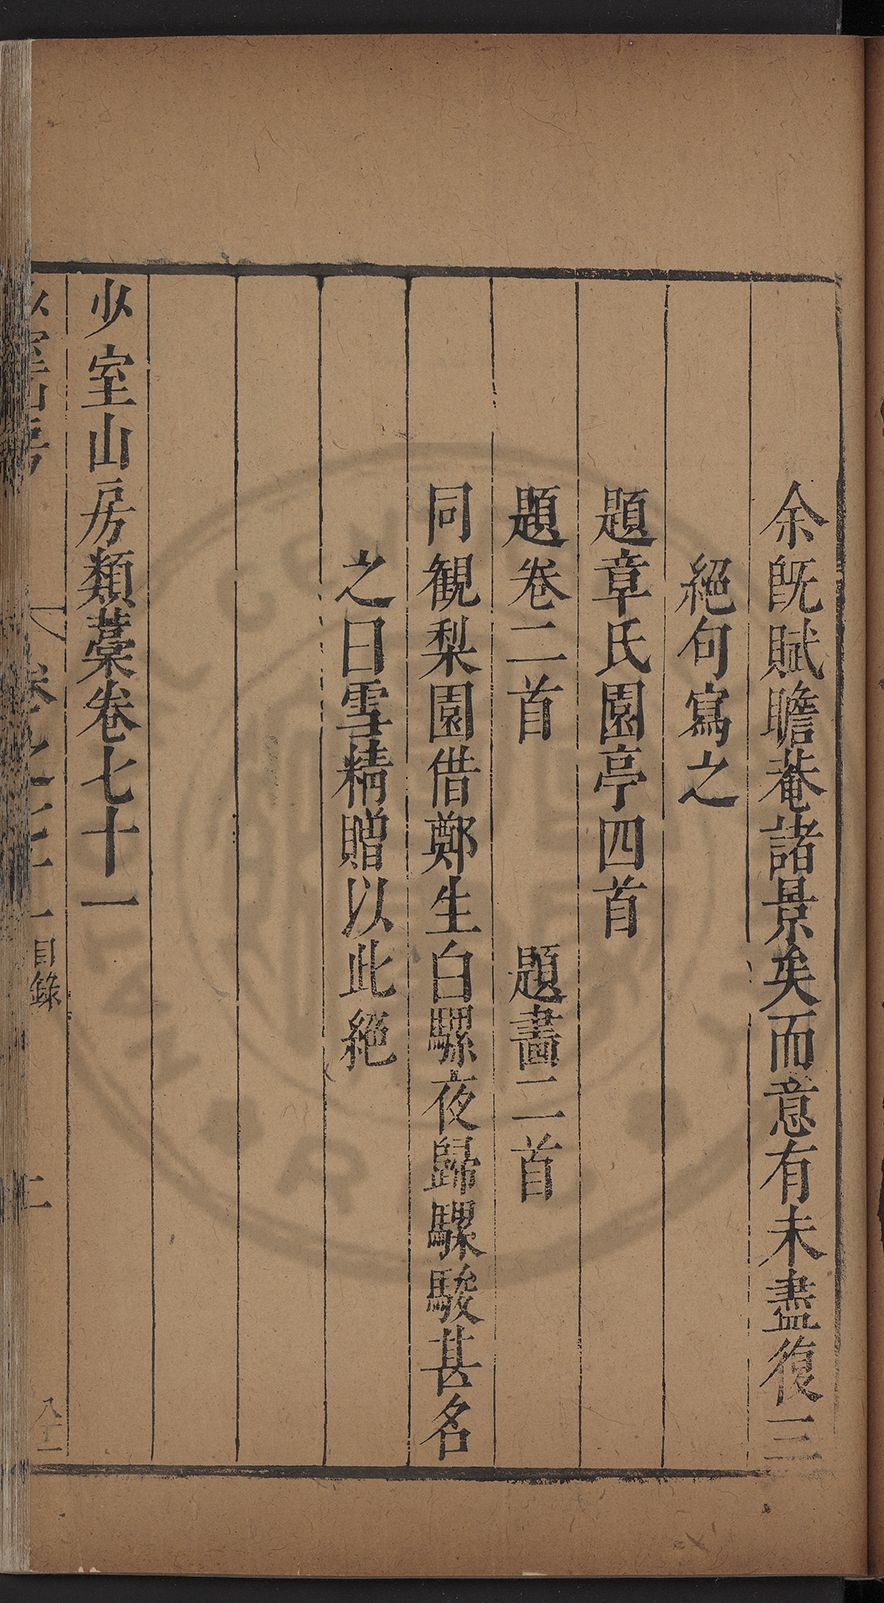 余既賦瞻菴諸景矣而意有未盡復三
絕句寫之
題章氏園亭四首
題卷二首　題畫二首
同觀梨園借鄭生白騾夜歸騾駿甚名
之曰雪精贈以此絕
少室山房類藁卷七十一
少室山房　卷之七十一目錄　二